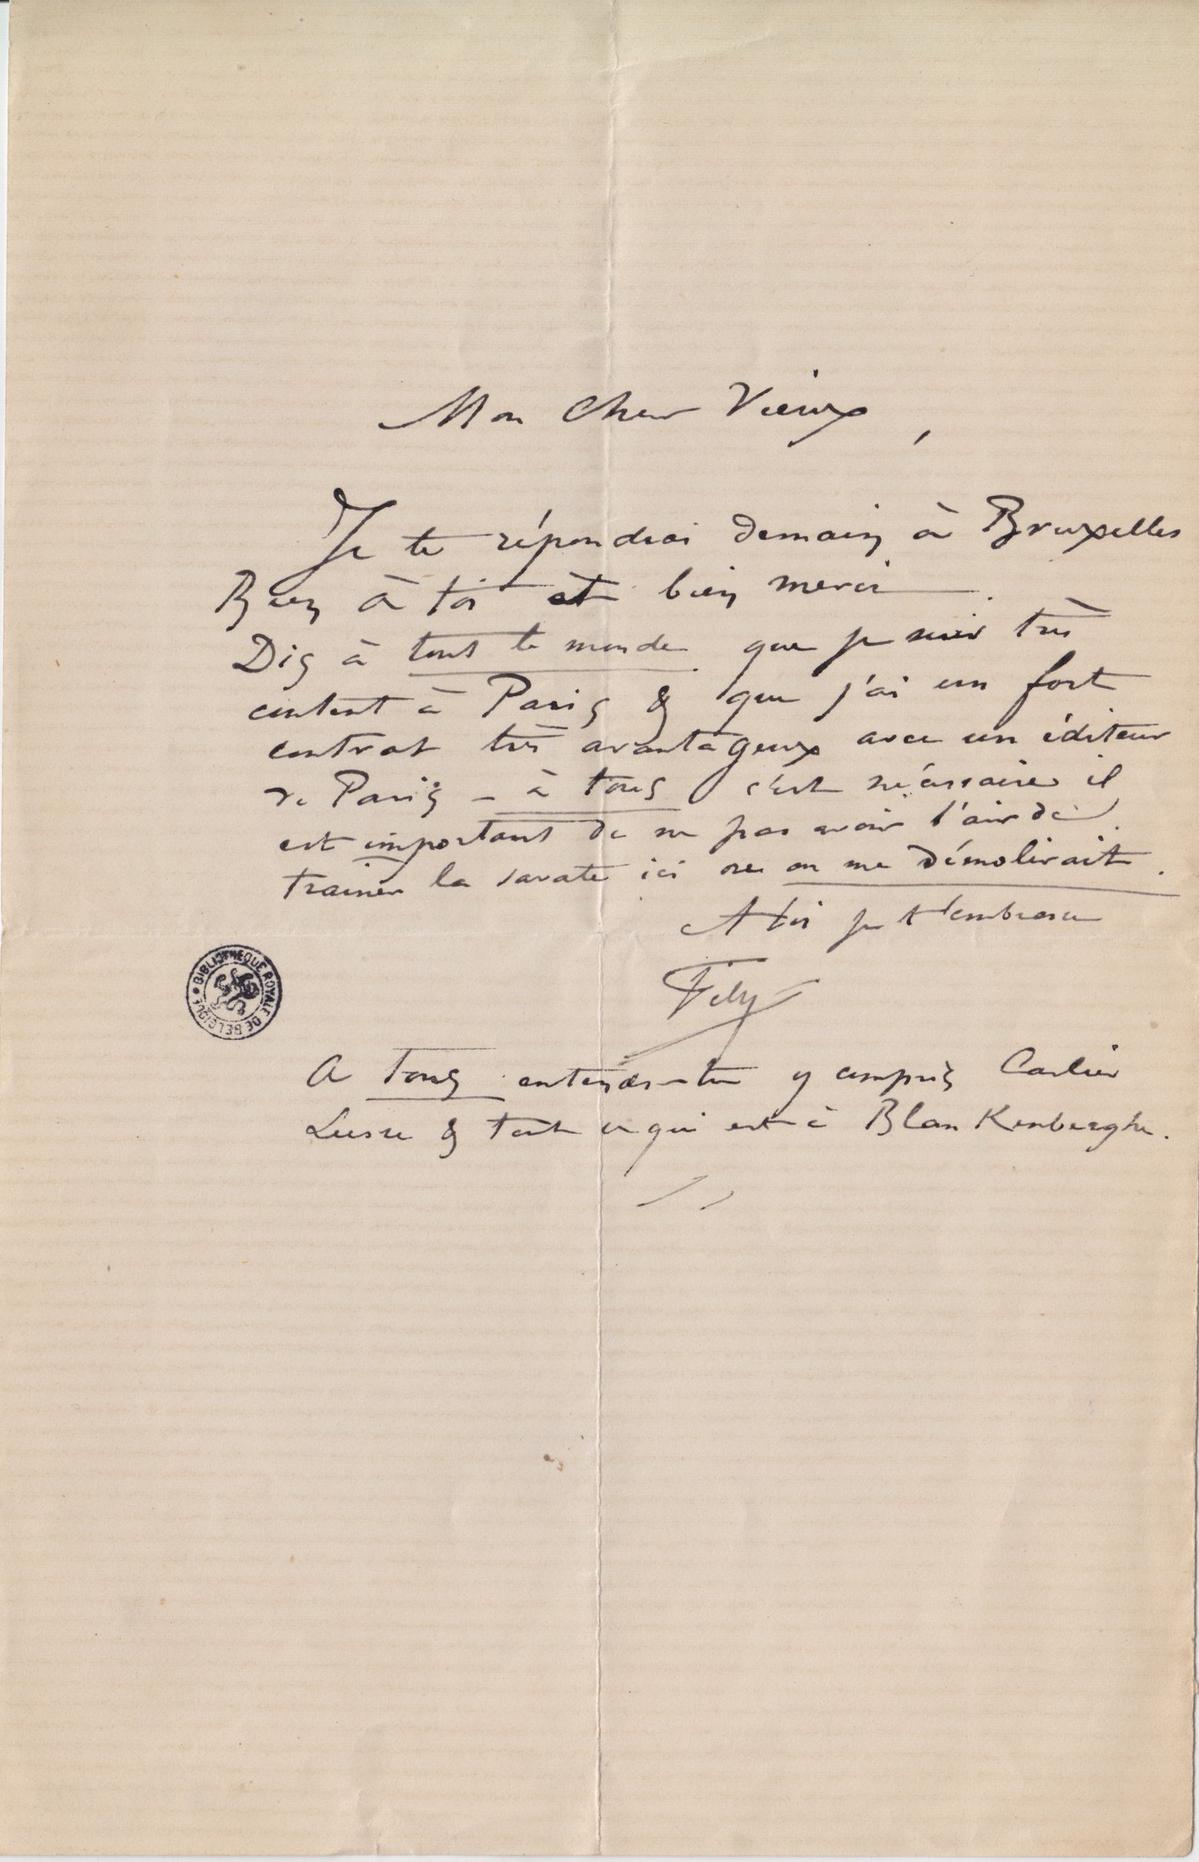 Mon Cher Vieux,
Je te répondrai demain à Bruxelles
Bien à toi et bien merci
Dis à tout le monde que je suis très
content à Paris & que j'ai un fort
contrat très avantageux avec un éditeur
de Paris – à tous c'est nécessaire il
est important de ne pas avoir l'air de
trainer la savate ici ou on me démolirait.
A toi je t'embrasse
Fély
A Tous entends-tu y compris Carlier
& tout ce qui est à Blankenberghe.
BIBLIOTHEQUE ROYALE DE BELGIQUE